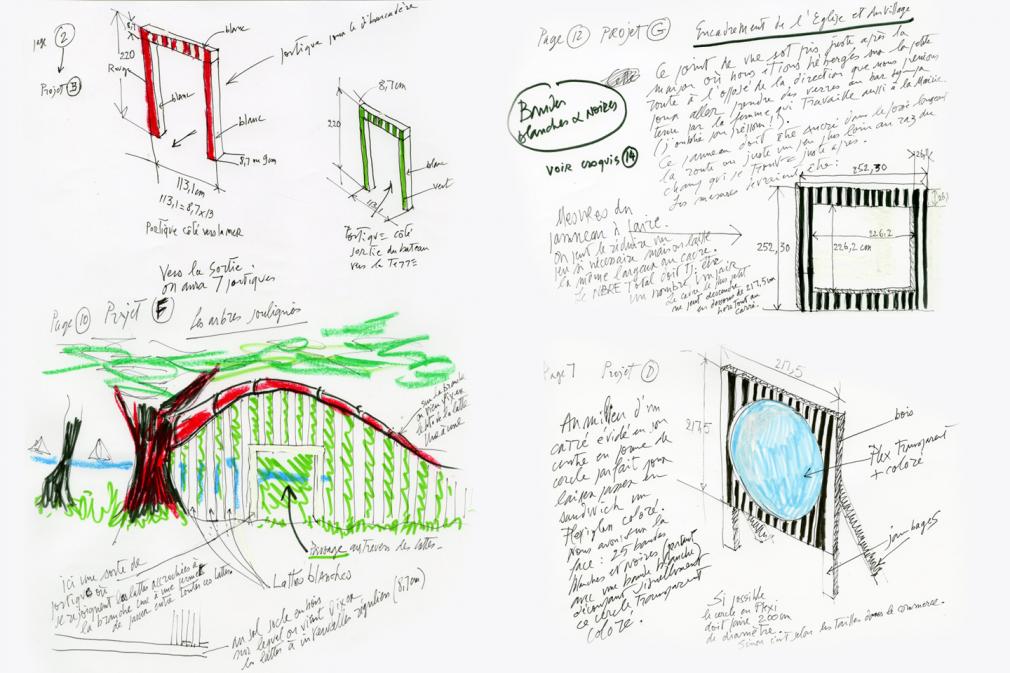 page 2
Projet B
8,7
220
Rouge
blanc
blanc
blanc
portique pour le débarcadère
8,7 ou 9cm
113,1cm
113,1 = 8,7 x 13
Portique côté vers la mer
Vers la Sortie.
on aura 7 portiques
8,7cm
220
blanc
vert
Portique côté
sortie du bateau
vers la Terre
Page 10 Projet E Les arbres soulignés
sur la branche
Passage au travers les lattes.
Lattes blanches
Ici une sorte de
portique où
se rejoignent les lattes accrochées à
la branche
de passer entre toutes ces lattes.
au sol socle en bois
sur lequel on vient fixer
les lattes à intervalles réguliers (8,7cm)
Page 12 Projet G Encadrement de l'Eglise et du Village
Ce point de vue est pris juste après la
maison où nous étions hébergés sur la petite
route à l'opposé de la direction que nous prenions
pour aller prendre des verres au bar
tenu par la femme qui travaille aussi à la Mairie
(j'ai oublié son prénom!).
Ce panneau doit être ancré dans le
la route ou juste un peu plus loin au ras du
champ qui se trouve juste après.
Les mesures devraient être:
Bandes
blanches & NOIRES
voir croquis 14
Mesures du
panneau à faire.
on peut le réduire un
peu si nécessaire mais on laisse
la même largeur au cadre.
Le NBRE Total doit être
un nombre impair
Le cadre le plus petit
ne peut descendre
en dessous de 217,5cm
hors tout au
carré.
252,30
252,30
226,2
226,2 cm
Page 7 Projet D
217,5
217,5
Au milieu d'un
carré évidé en son
centre en forme de
cercle parfait pour
laisser passer en
sandwich un
Plexiglas coloré.
nous avons sur la
face: 25 bandes
blanches et noires partant
avec une bande blanche
découpant visuellement
ce cercle transparent
coloré.
bois
Plexi Transparent
+ coloré
jambages
Si possible
le cercle en Plexi
doit faire 200cm
de diamètre.
Sinon c'est selon les tailles dans le commerce.